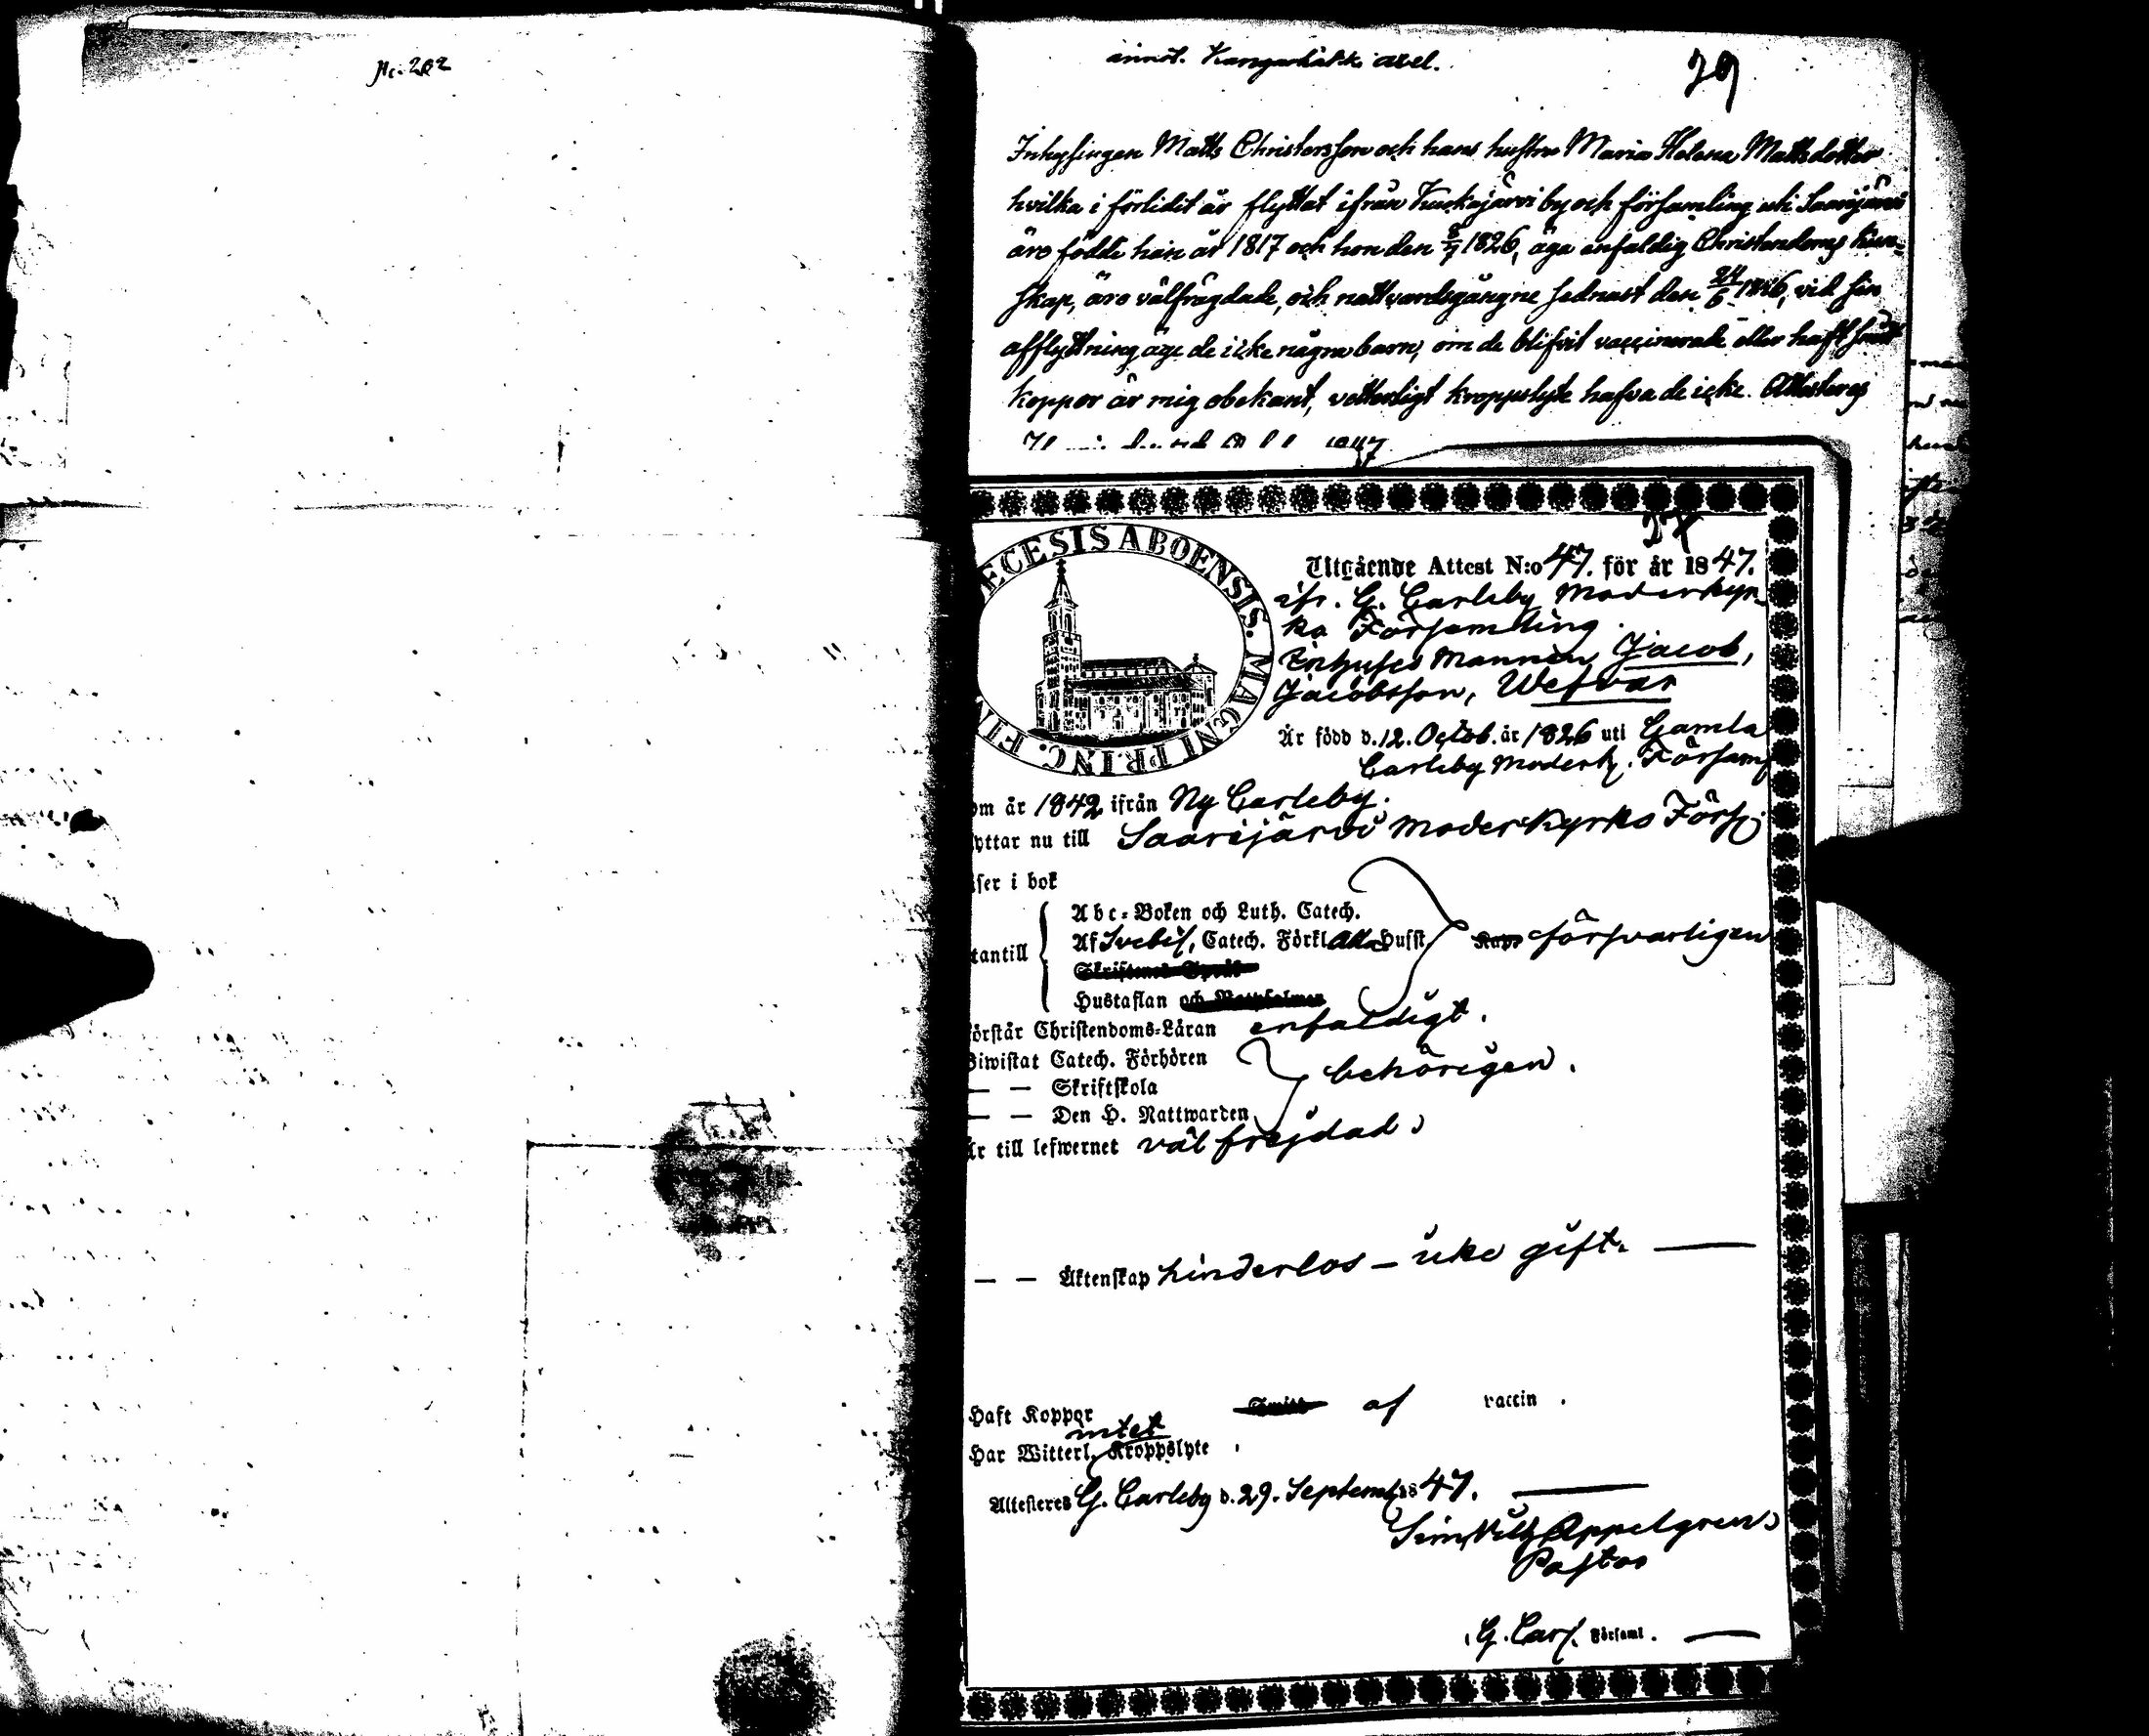 No. 202
annot. Kangashäkki axel.
79
Inhysingen Matts Christersson och hans hustru Maria Helena Mattsdotter
hvilka i förlidit år flyttat ifrån by och församling uti Saarijärvi
äro födde han år 1817 och hon den 8/7 1826, äga enfaldig Christendoms kun-
skap, äro välfrägdade, och nattvardsgångne sednast den 24/6 1846, vid sin
afflyttning äga de icke några barn, om de blifvit vaccinerade eller haft
koppor är mig obekant, vetterligt kroppslyte hafva de icke. Attesteras
1847
ECESIS ABOENSIS. MAGNI PRINC. FIN
Utgående Attest N:o 47. för år 1847.
ifr. G. Carleby Moderkyr-
ko Församling.
Inhyses Mannen Jacob,
Jacobsson, Wefvar
År född d. 12. Octob. år 1826 uti Gamla
Carleby Moderk. Församl
om år 1842 ifrån Ny Carleby.
yttar nu till Saarijärvi Moderkyrko Förs.
äser i bok
Abc-Boken och Luth. Catech.
tantill Af Svebil, Catech. Förkl. Alla Husst. försvarligen
Skriftenes Språk
Hustaflan och Botpsalmer
örstår Christendoms-Läran enfaldigt.
Biwistat Catech. Förhören
— — Skriftskola behörigen.
— — Den H. Nattwarden
Är till lefwernet väl frejdad.
— — Äktenskap hinderlös – icke gift. —
Haft Koppor af vaccin.
intet
Har Witterl. Kroppslyte.
Attesteres G. Carleby d. 29. Septemb. 1847. —
Sim. Vilh. Appelgren
Pastor
G. Carl. Församl. —